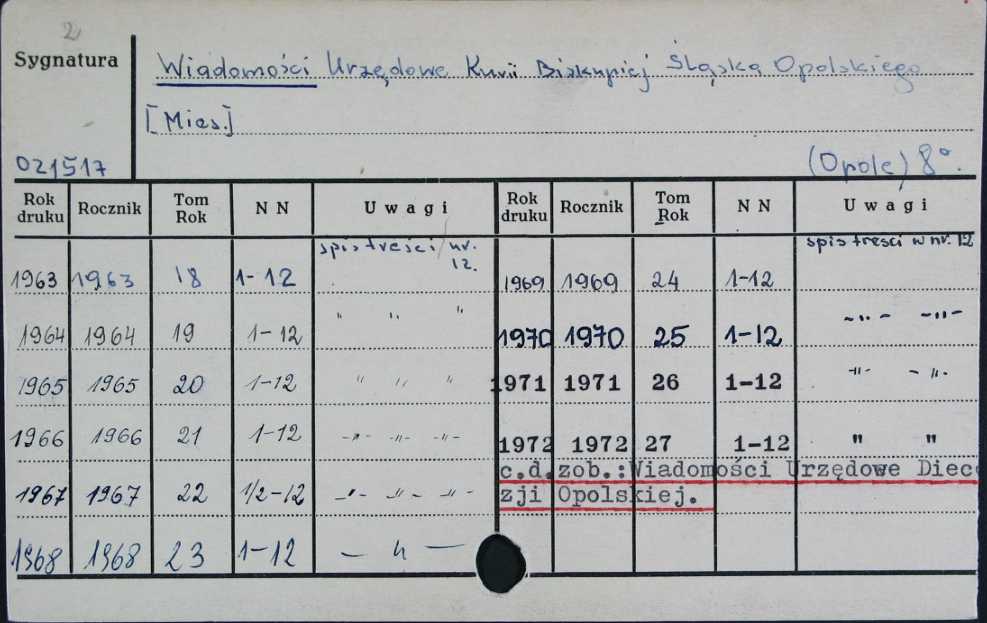 2
Sygnatura
Wiadomości Urzędowe Kurii Biskupiej Śląska Opolskiego
[Mies.]
021517
(Opole) 8°.
Rok druku Rocznik Tom Rok NN Uwagi Rok druku Rocznik Tom Rok NN Uwagi
spis treści/nr. 12. spis treści w nr. 12
1963 1963 18 1-12 1969 1969 24 1-12
1964 1964 19 1-12 " " " 1970 1970 25 1-12 -"- -"-
1965 1965 20 1-12 " " " 1971 1971 26 1-12 -"- -"-
1966 1966 21 1-12 -"- -"- -"- 1972 1972 27 1-12 " "
c.d.zob.:Wiadomości Urzędowe Diece
1967 1967 22 1/2-12 -"- -"- -"- zji Opolskiej.
1968 1968 23 1-12 — " —